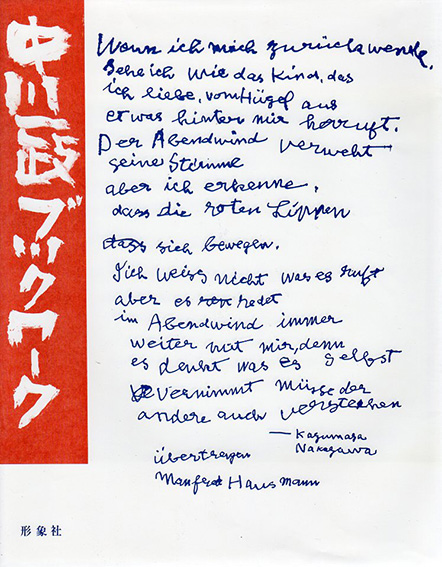 中川一政ブックワーク
Wenn ich mich zurückwende,
sehe ich wie das Kind, das
ich liebe, vom Hügel aus
etwas hinter mir herruft.
Der Abendwind verweht
seine Stimme
aber ich erkenne,
dass die roten Lippen
dass sich bewegen.
Ich weiss nicht was es ruft
aber es redet
im Abendwind immer
weiter mit mir, denn
es denkt was es selbst
vernimmt müsse der
andere auch verstehen
— Kazumasa
Nakagawa
übertragen
Manfred Hausmann
形象社